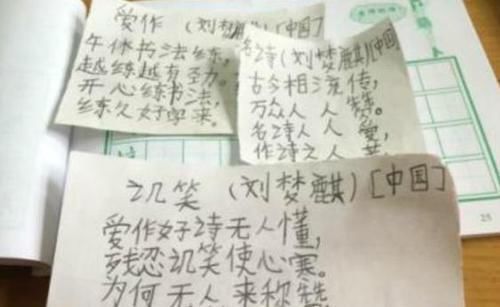 爱作(刘梦麒)[中国]
午休书法练,
越练越有劲。
开心练书法,
练久好字来。
名诗(刘梦麒)[中国]
古今相流传,
万众人人赞。
名诗人人爱,
作诗之人
讥笑(刘梦麒)[中国]
爱作好诗无人懂,
残忍讥笑使心寒。
为何无人来称赞
25